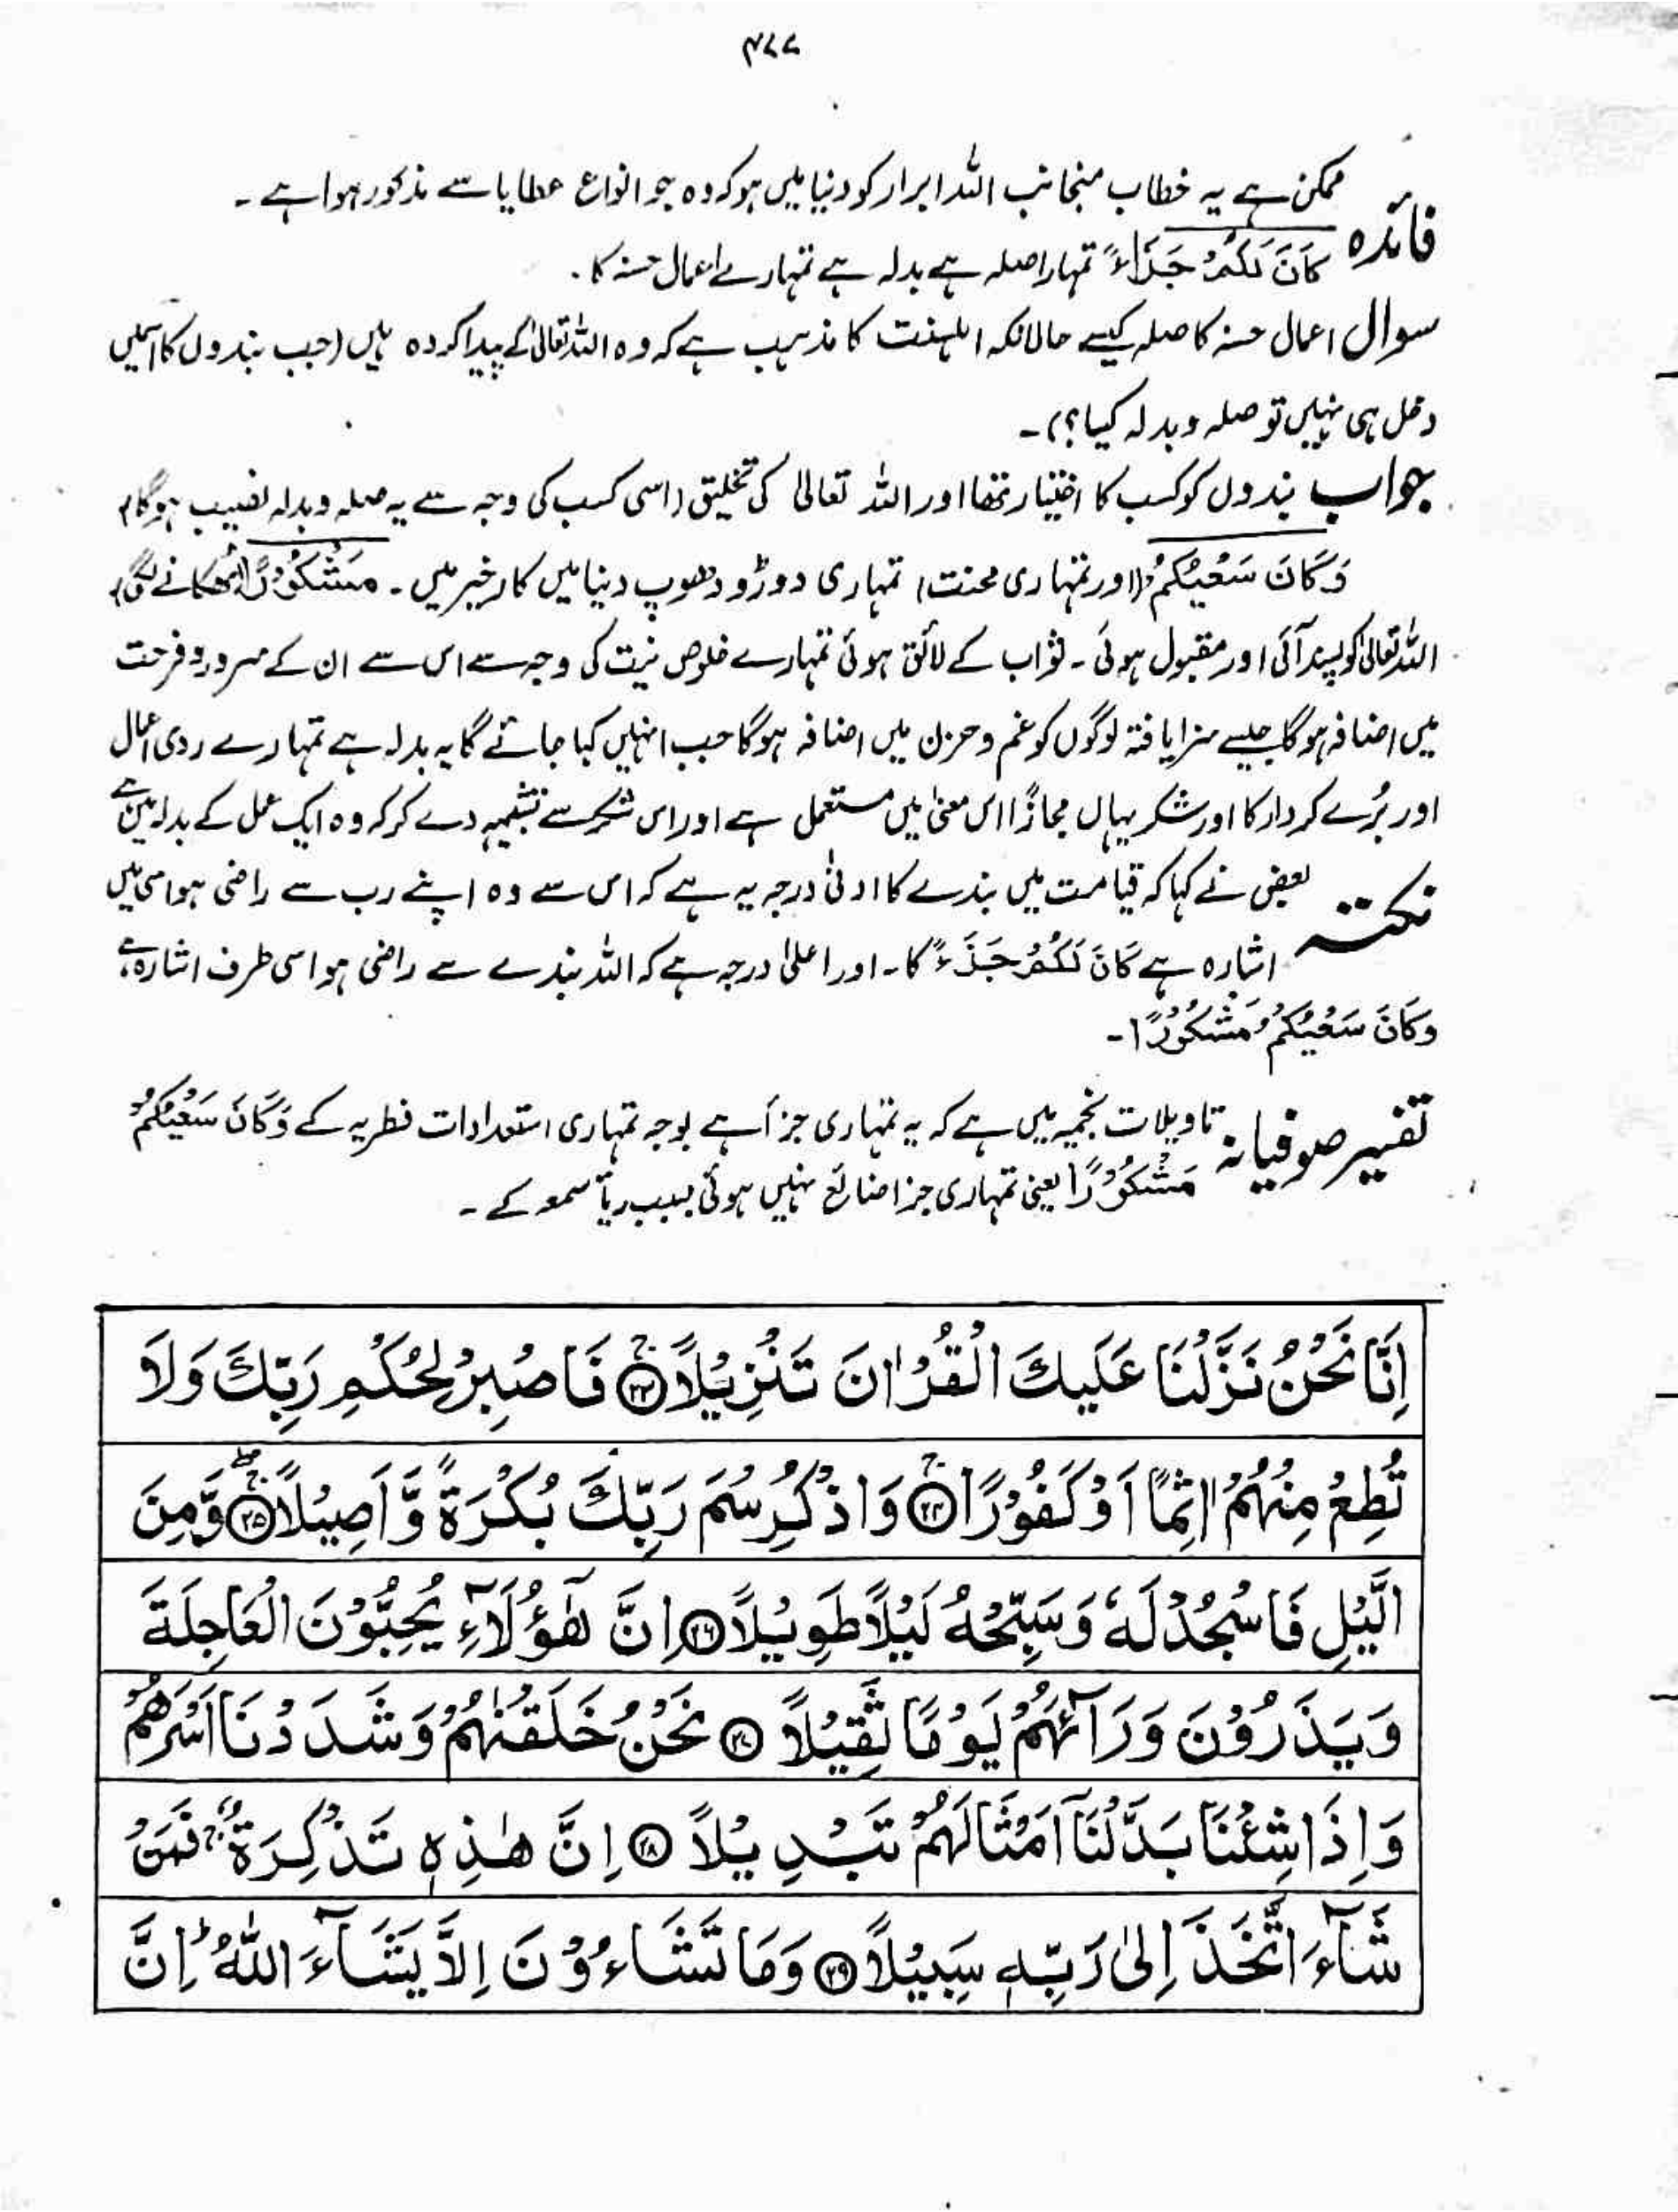 ۴۷۷
ممکن ہے یہ خطاب منجانب اللہ ابرار کو دنیا میں ہو کہ وہ جو انواع عطایا سے مذکور ہوا ہے ۔
فائدہ
کَانَ لَکُمْ جَزَاءً تمہارا صلہ ہے بدلہ ہے تمہارے اعمال حسنہ کا ۔
سوال اعمال حسنہ کا صلہ کیسے حالانکہ اہلسنت کا مذہب ہے کہ وہ اللہ تعالیٰ کے پیدا کردہ ہیں (جب بندوں کا اسمیں
دخل ہی نہیں تو صلہ و بدلہ کیا ؟) ۔
جواب بندوں کو کسب کا اختیار تھا اور اللہ تعالیٰ کی تخلیق (اسی کسب کی وجہ سے یہ صلہ و بدلہ نصیب ہوگا)
وَکَانَ سَعْیُکُمْ (اور تمہاری محنت) تمہاری دوڑ و دھوپ دنیا میں کار خیر میں ۔ مَّشْکُوْرًا (ٹھکانے لگی)
اللہ تعالیٰ کو پسند آئی اور مقبول ہوئی ۔ ثواب کے لائق ہوئی تمہارے خلوص نیت کی وجہ سے اس سے ان کے سرور و فرحت
میں اضافہ ہوگا جیسے سزا یافتہ لوگوں کو غم و حزن میں اضافہ ہوگا جب انہیں کہا جائے گا یہ بدلہ ہے تمہارے ردی اعمال
اور بُرے کردار کا اور شکر یہاں مجازًا اس معنیٰ میں مستعمل ہے اور اس شکر سے تشبیہہ دے کر کہ وہ ایک عمل کے بدلہ میں ہے
نکتہ بعض نے کہا کہ قیامت میں بندے کا ادنیٰ درجہ یہ ہے کہ اس سے وہ اپنے رب سے راضی ہوا سی میں
اشارہ ہے کَانَ لَکُمْ جَزَاءً کا ۔ اور اعلیٰ درجہ ہے کہ اللہ بندے سے راضی ہو اسی طرف اشارہ ہے ،
وَکَانَ سَعْیُکُمْ مَّشْکُوْرًا ۔
تفسیر صوفیانہ تاویلات نجمیہ میں ہے کہ یہ تمہاری جزأ ہے بوجہ تمہاری استعدادات فطریہ کے وَکَانَ سَعْیُکُمْ
مَّشْکُوْرًا یعنی تمہاری جزا ضائع نہیں ہوئی بسبب ریأ سمعہ کے ۔
اِنَّا نَحْنُ نَزَّلْنَا عَلَیْكَ الْقُرْاٰنَ تَنْزِیْلًا ۲۳ فَاصْبِرْ لِحُكْمِ رَبِّكَ وَلَا
تُطِعْ مِنْهُمْ اٰثِمًا اَوْ كَفُوْرًا ۲۴ وَاذْكُرِ سْمَ رَبِّكَ بُكْرَةً وَّاَصِیْلًا ۲۵ وَّمِنَ
الَّیْلِ فَاسْجُدْ لَهٗ وَسَبِّحْهُ لَیْلًا طَوِیْلًا ۲۶ اِنَّ هٰۤؤُلَآءِ یُحِبُّوْنَ الْعَاجِلَةَ
وَیَذَرُوْنَ وَرَآءَهُمْ یَوْمًا ثَقِیْلًا ۲۷ نَحْنُ خَلَقْنٰهُمْ وَشَدَدْنَا اَسْرَهُمْ
وَاِذَا شِئْنَا بَدَّلْنَاۤ اَمْثَالَهُمْ تَبْدِیْلًا ۲۸ اِنَّ هٰذِهٖ تَذْكِرَةٌ فَمَنْ
شَآءَ اتَّخَذَ اِلٰى رَبِّهٖ سَبِیْلًا ۲۹ وَمَا تَشَاءُوْنَ اِلَّاۤ یَشَآءَ اللّٰهُ اِنَّ